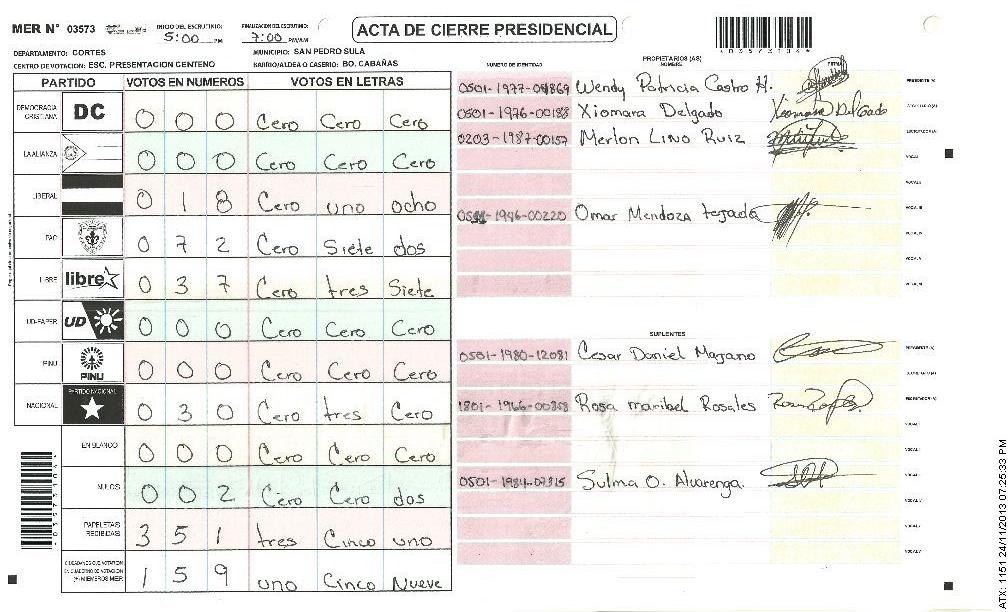 MER N° 03573 INICIO DEL ESCRUTINIO: 5:00 PM FINALIZACION DEL ESCRUTINIO: 7:00 PM/AM
ACTA DE CIERRE PRESIDENCIAL
DEPARTAMENTO: CORTES MUNICIPIO: SAN PEDRO SULA
CENTRO DE VOTACION: ESC. PRESENTACION CENTENO BARRIO/ALDEA O CASERIO: BO. CABAÑAS
PARTIDO VOTOS EN NUMEROS VOTOS EN LETRAS
DEMOCRACIA CRISTIANA DC 0 0 0 Cero Cero Cero
LA ALIANZA 0 0 0 Cero Cero Cero
LIBERAL 0 1 8 Cero uno ocho
PAC 0 7 2 Cero Siete dos
LIBRE libre 0 3 7 Cero tres Siete
UD-FAPER UD 0 0 0 Cero Cero Cero
PINU PINU 0 0 0 Cero Cero Cero
NACIONAL PARTIDO NACIONAL 0 3 0 Cero tres Cero
EN BLANCO 0 0 0 Cero Cero Cero
NULOS 0 0 2 Cero Cero dos
PAPELETAS RECIBIDAS 3 5 1 tres Cinco uno
CIUDADANOS QUE VOTARON EN CUADERNO DE VOTACION (+) MIEMBROS MER 1 5 9 uno Cinco Nueve
PROPIETARIOS (AS)
NUMERO DE IDENTIDAD NOMBRE FIRMA
0501-1977-04869 Wendy Patricia Castro H. PRESIDENTE (A)
0501-1976-00188 Xiomara Delgado Xiomara Delgado
0203-1987-00157 Merlon Lino Ruiz
1946-00220 Omar Mendoza tejada
SUPLENTES
0501-1980-12081 Cesar Daniel Mazano PRESIDENTE (A)
1801-1966-00358 Rosa maribel Rosales
0501-1984-07315 Sulma O. Alvarenga.
ATX: 1151 24/11/2013 07:25:33 PM